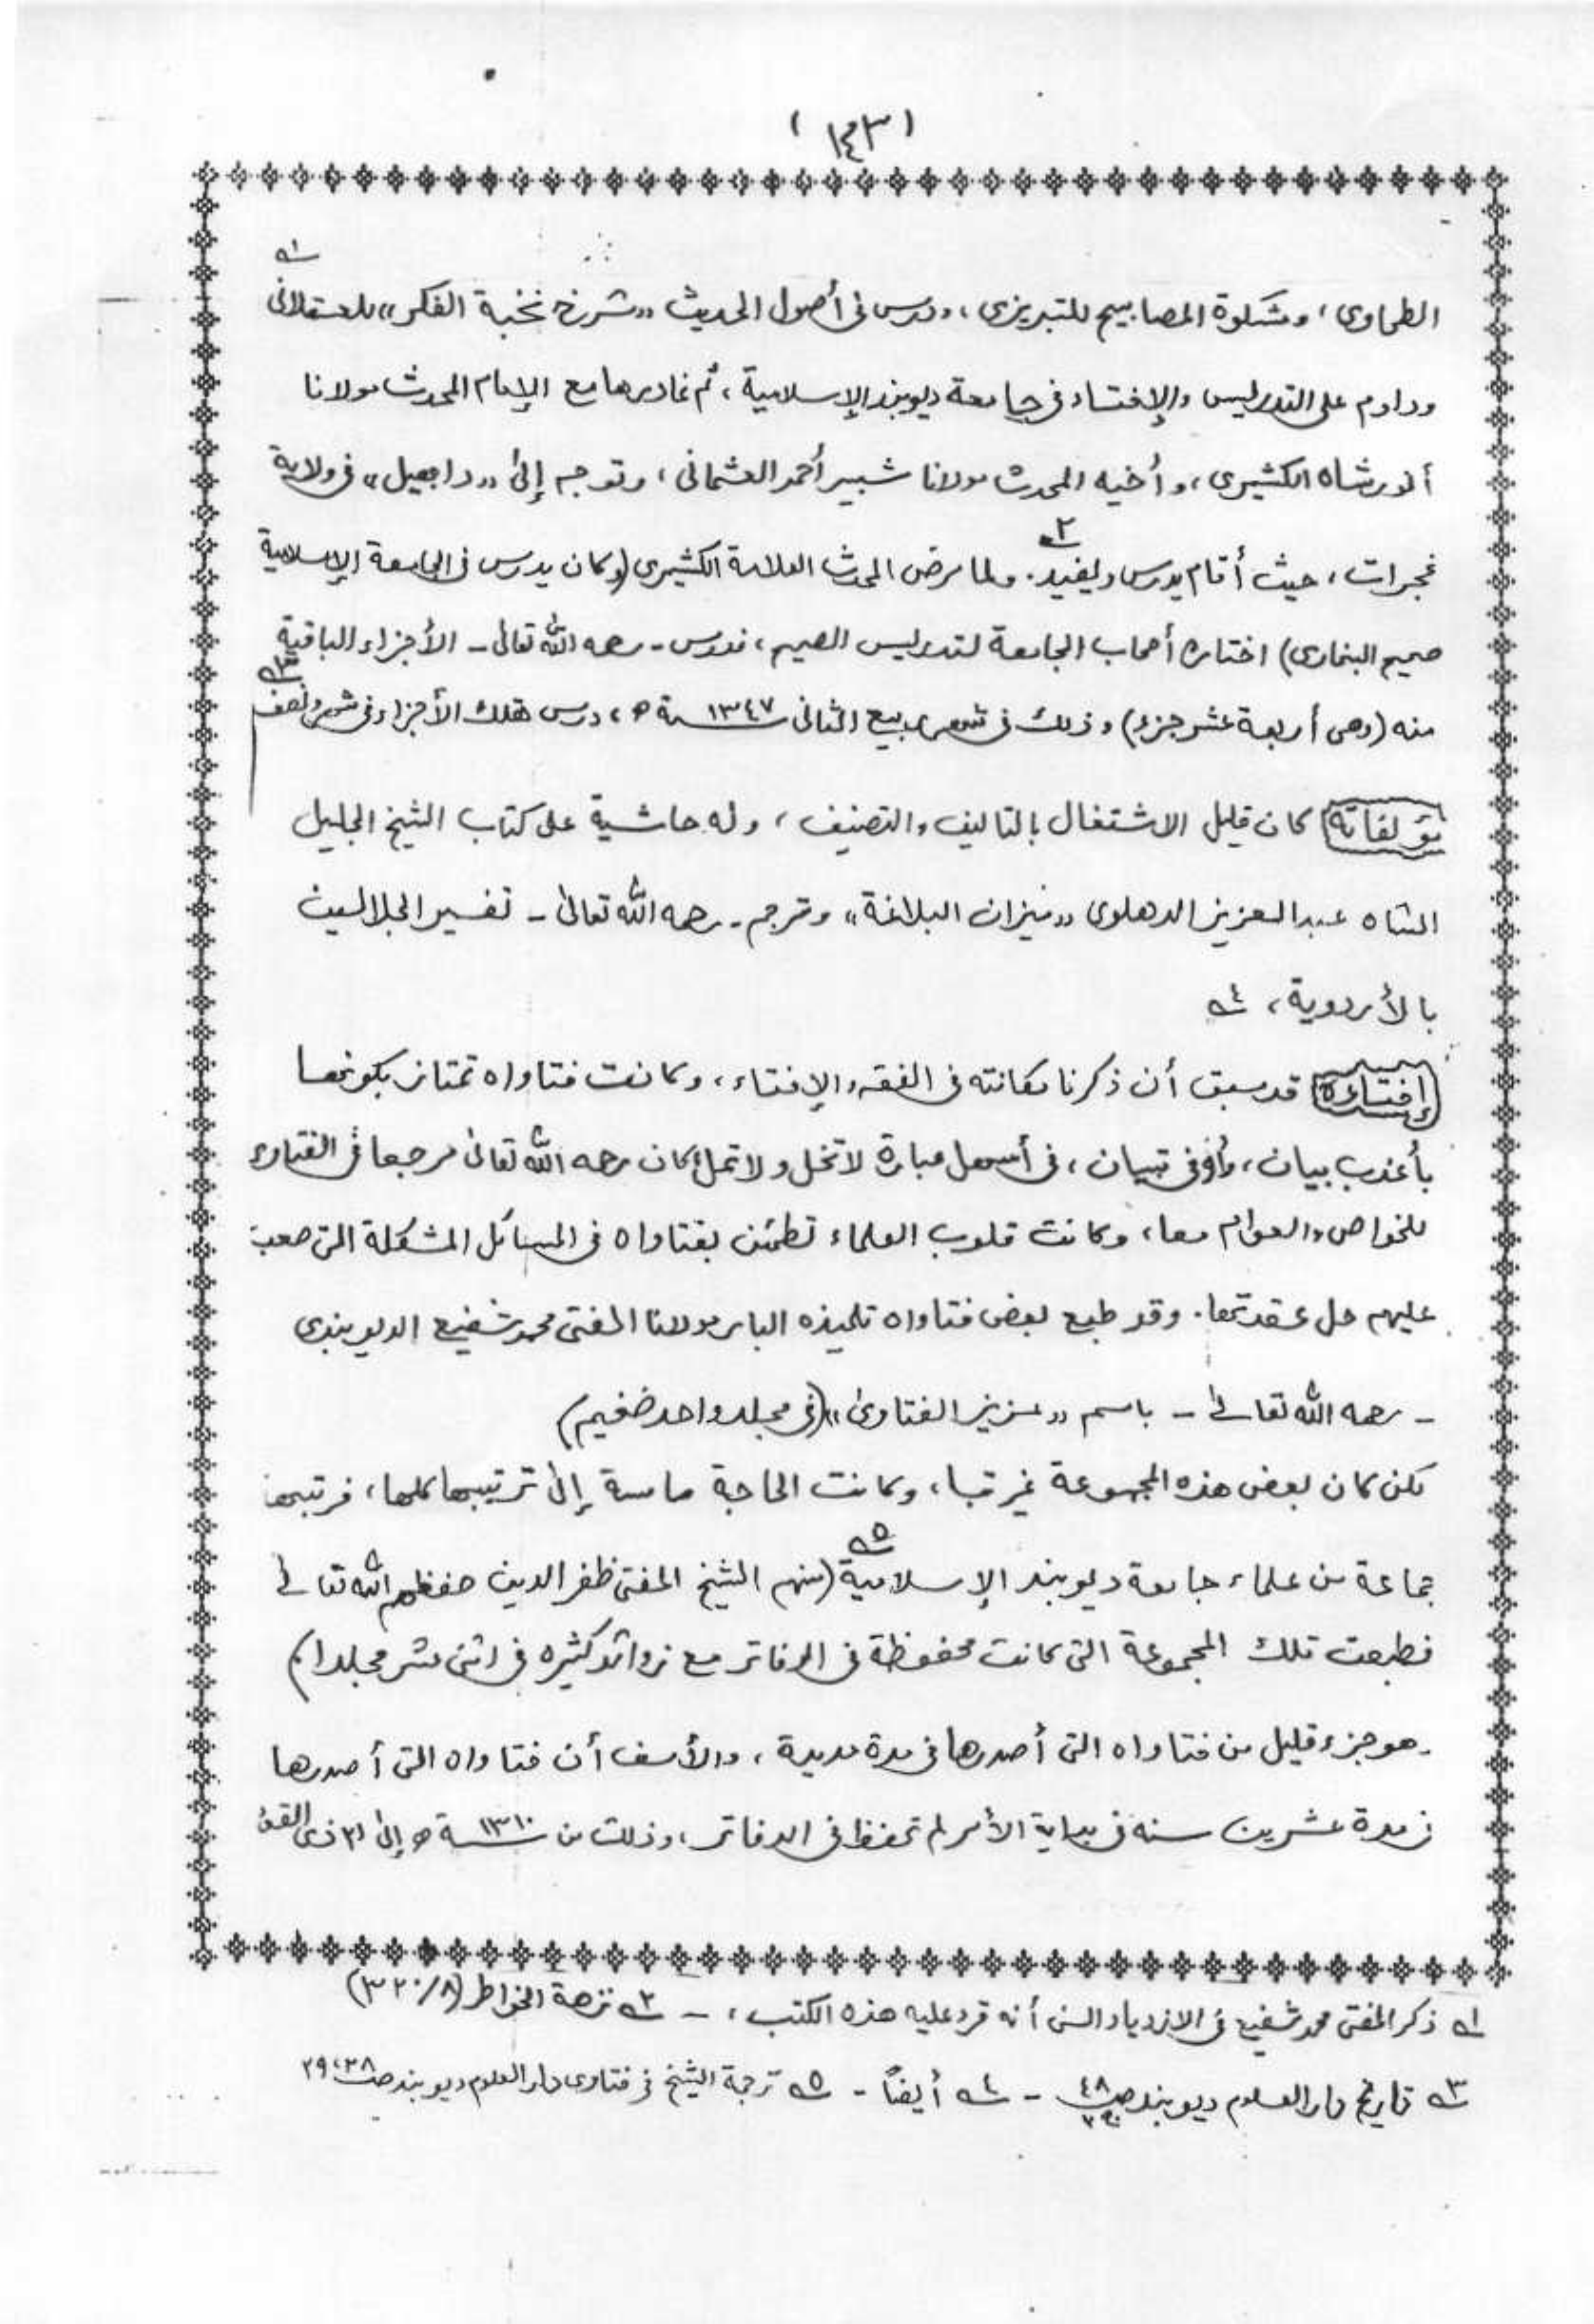 (١٤٣)
الطحاوى، ومشكوة المصابيح للتبريزى، ودرس فى أصول الحديث "شرح نخبة الفكر" للعسقلانى ١؎
وداوم على التدريس والإفتاء فى جامعة ديوبند الإسلامية، ثم غادرها مع الإمام المحدث مولانا
أنورشاه الكشيرى، وأخيه المحدث مولانا شبير أحمد العثمانى، وتوجه إلىٰ "دابھيل" فى ولاية
غجرات، حيث أقام يدرس ويفيد. ٢؎ ولما مرض المحدث العلامة الكشيرى (وكان يدرس فى الجامعة الإسلامية
صحيح البخارى) اختاره أصحاب الجامعة لتدريس الصحيح، فدرس - رحمه الله تعالىٰ - الأجزاء الباقية
منه (وهى أربعة عشر جزء) وذلك فى شهر ربيع الثانى سنة ١٣٤٧ ه، درس تلك الأجزاء فى شهر ونصف ٣؎
مؤلفاته كان قليل الاشتغال بالتاليف والتصنيف، وله حاشية على كتاب الشيخ الجليل
الشاه عبد العزيز الدهلوى "ميزان البلاغة" وترجم - رحمه الله تعالىٰ - تفسير الجلالين
بالأردوية، ٤؎
إفتاءه قد سبق أن ذكرنا مكانته فى الفقه والإفتاء، وكانت فتاواه تمتاز بكونها
بأعذب بيان، وأوفى تبيان، فى أسهل عبارة لا تخل ولا تمل كان رحمه الله تعالىٰ مرجعا فى الفتاوى
للخواص والعوام معا، وكانت قلوب العلماء تطمئن بفتاواه فى المسائل المشكلة التى صعب
عليهم حل عقدتها. وقد طبع بعض فتاواه تلميذه البار مولانا المفتى محمد شفيع الديوبندى
- رحمه الله تعالىٰ - باسم "عزيز الفتاوىٰ" (فى مجلد واحد ضخيم)
لكن كان بعض هذه المجموعة غير تبا، وكانت الحاجة ماسة إلىٰ ترتيبها كلها، فرتبها
جماعة من علماء جامعة ديوبند الإسلامية ٥؎ (منهم الشيخ المفتى ظفر الدين حفظهم الله تعالىٰ
فطبعت تلك المجموعة التى كانت محفوظة فى الدفاتر مع زوائد كثيره فى اثنى عشر مجلدا)
هو جزء قليل من فتاواه التى أصدرها فى مدة مديدة، والأسف أن فتاواه التى أصدرها
فى مدة عشرين سنه فى بداية الأمر لم تحفظ فى الدفاتر، وذلك من سنة ١٣١٠ ه إلىٰ ذى القعدة
١؎ ذكر المفتى محمد شفيع فى الازدياد السنى أنه قرء عليه هذه الكتب، - ٢؎ نزهة الخواطر (٣٢٠/٨)
٣؎ تاريخ دار العلوم ديوبند ص ٤٨ - ٤؎ أيضًا - ٥؎ ترجمة الشيخ فى فتاوى دار العلوم ديوبند ص ٣٨، ٣٩